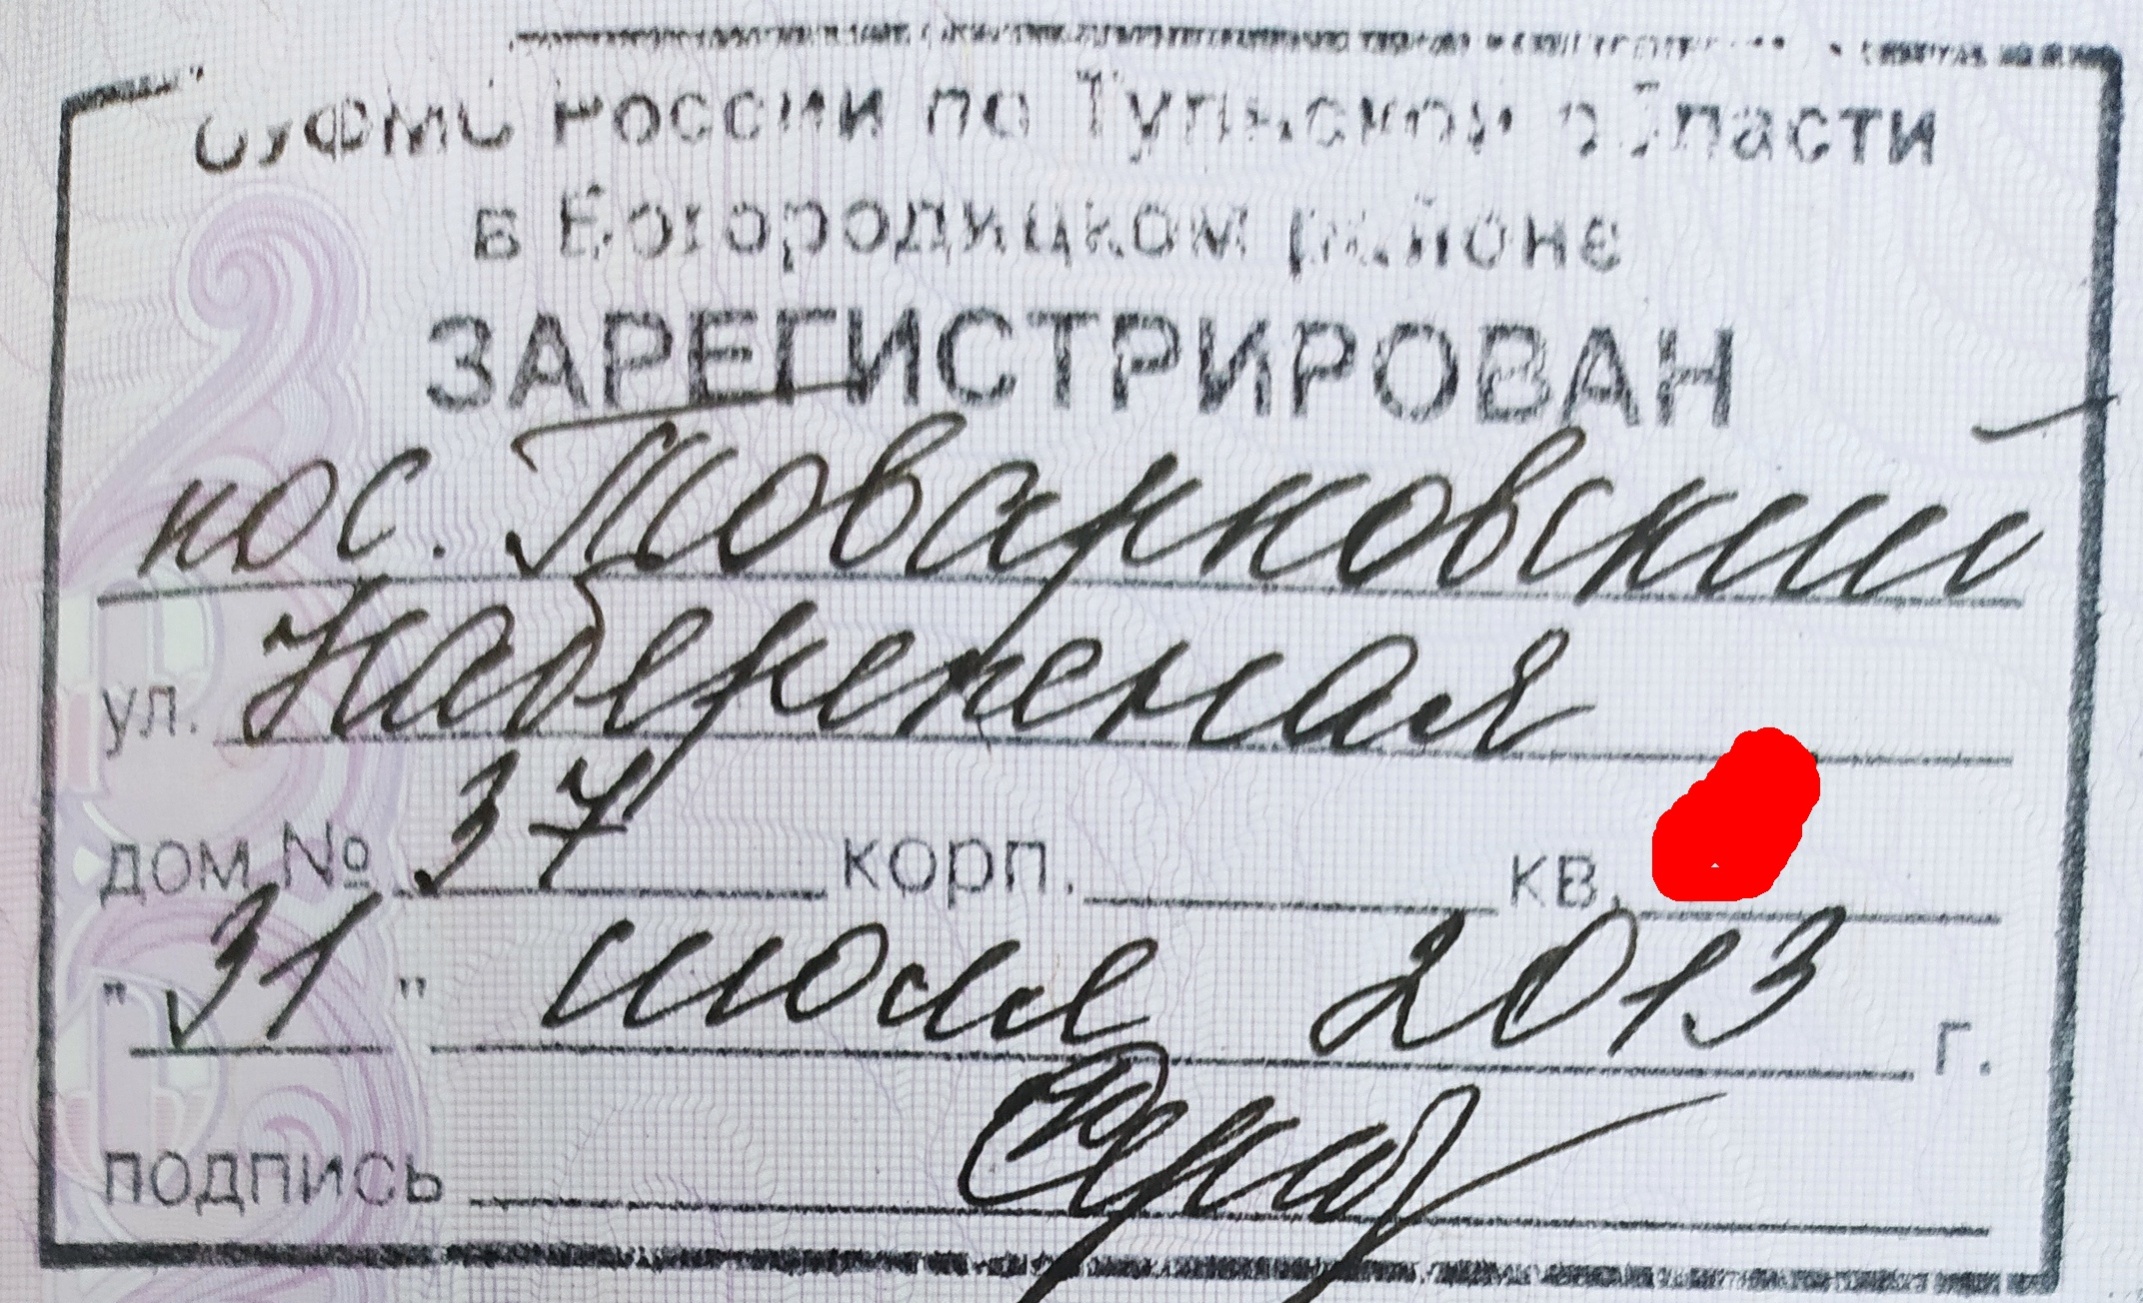 ОУФМС России по Тульской области
в Богородицком районе
ЗАРЕГИСТРИРОВАН
пос. Товарковский
ул. Набережная
дом № 37 корп. кв.
"31" июля 2013 г.
подпись